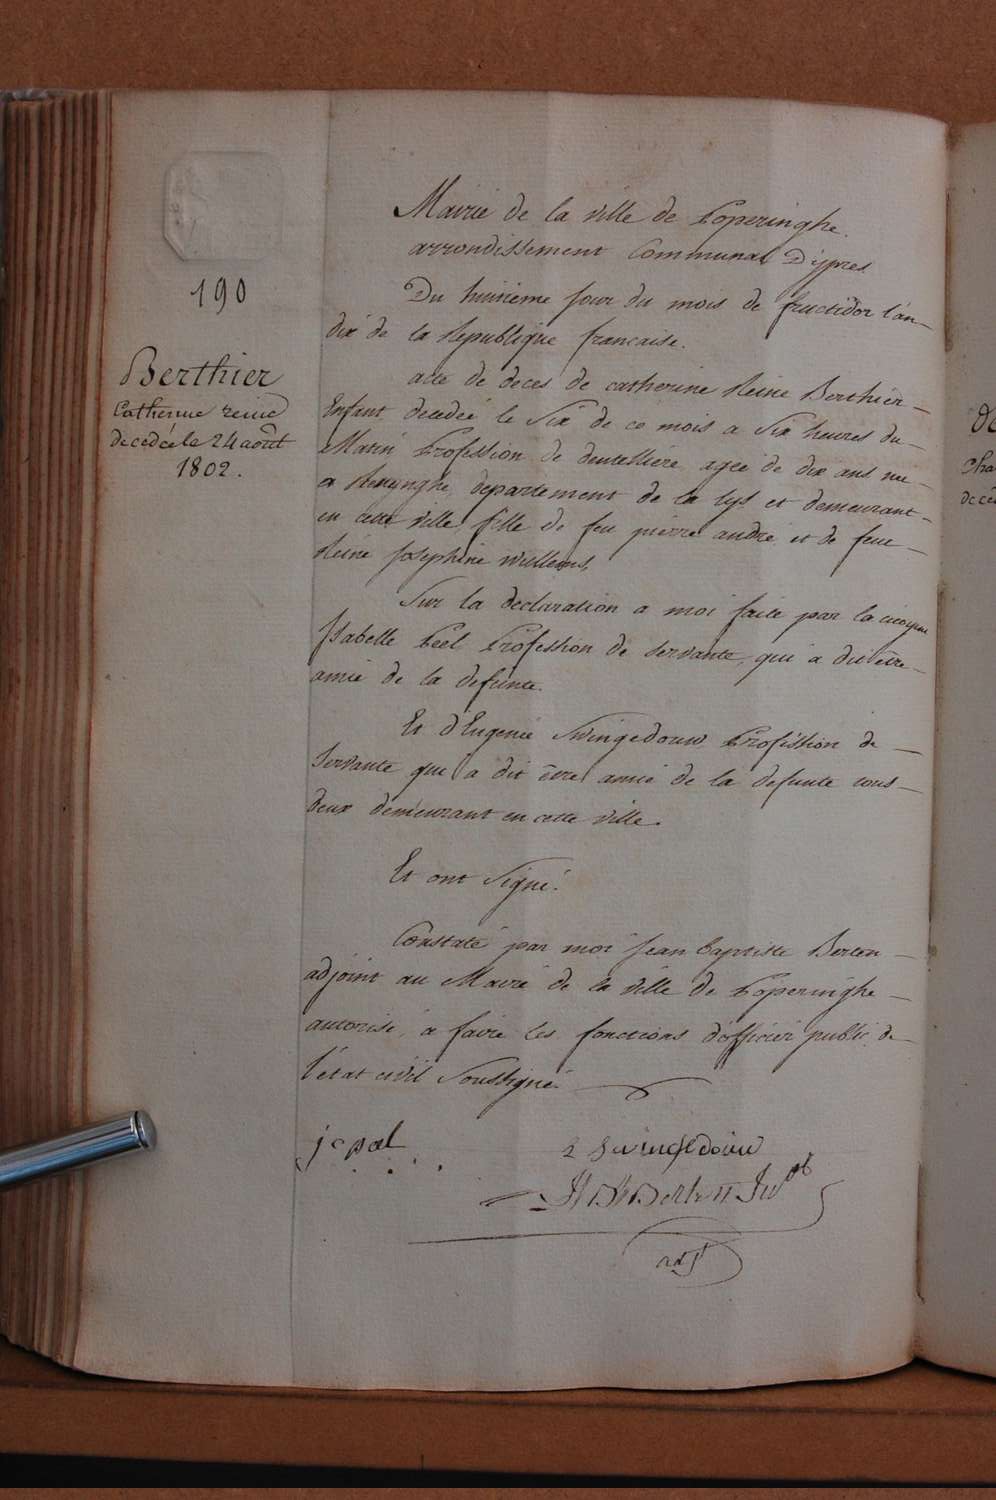 190
Berthier
Catherine reine
decedée le 24 août
1802.
Mairie de la ville de Poperinghe.
arrondissement Communal D'ypres
Du huitieme jour du mois de fructidor l'an
dix de la Republique francaise.
acte de deces de catherine Reine Berthier
Enfant decedeé le Six de ce mois a Six heures du
Matin Profession de dentelliere, ageé de dix ans neé
a Renynghe, departement de la lys et demeurant
en cette ville fille de feu pierre andré et de feue
Reine Josephine willems,
Sur la declaration a moi faite par la citoyene
Isabelle Peel Profession de servante, qui a dit être
amie de la defunte.
Et d'Eugenie Swingedouw Profession de
Servante qui a dit être amie de la defunte tous
deux demeurant en cette ville.
Et ont Signé.
Constaté par moi Jean baptiste Berten
adjoint au Maire de la ville de Poperinghe
autorisé a faire les fonctions d'officier public de
l'état civil Soussigné.
Swingedouw
Berten
adjt
De
Cha
decé